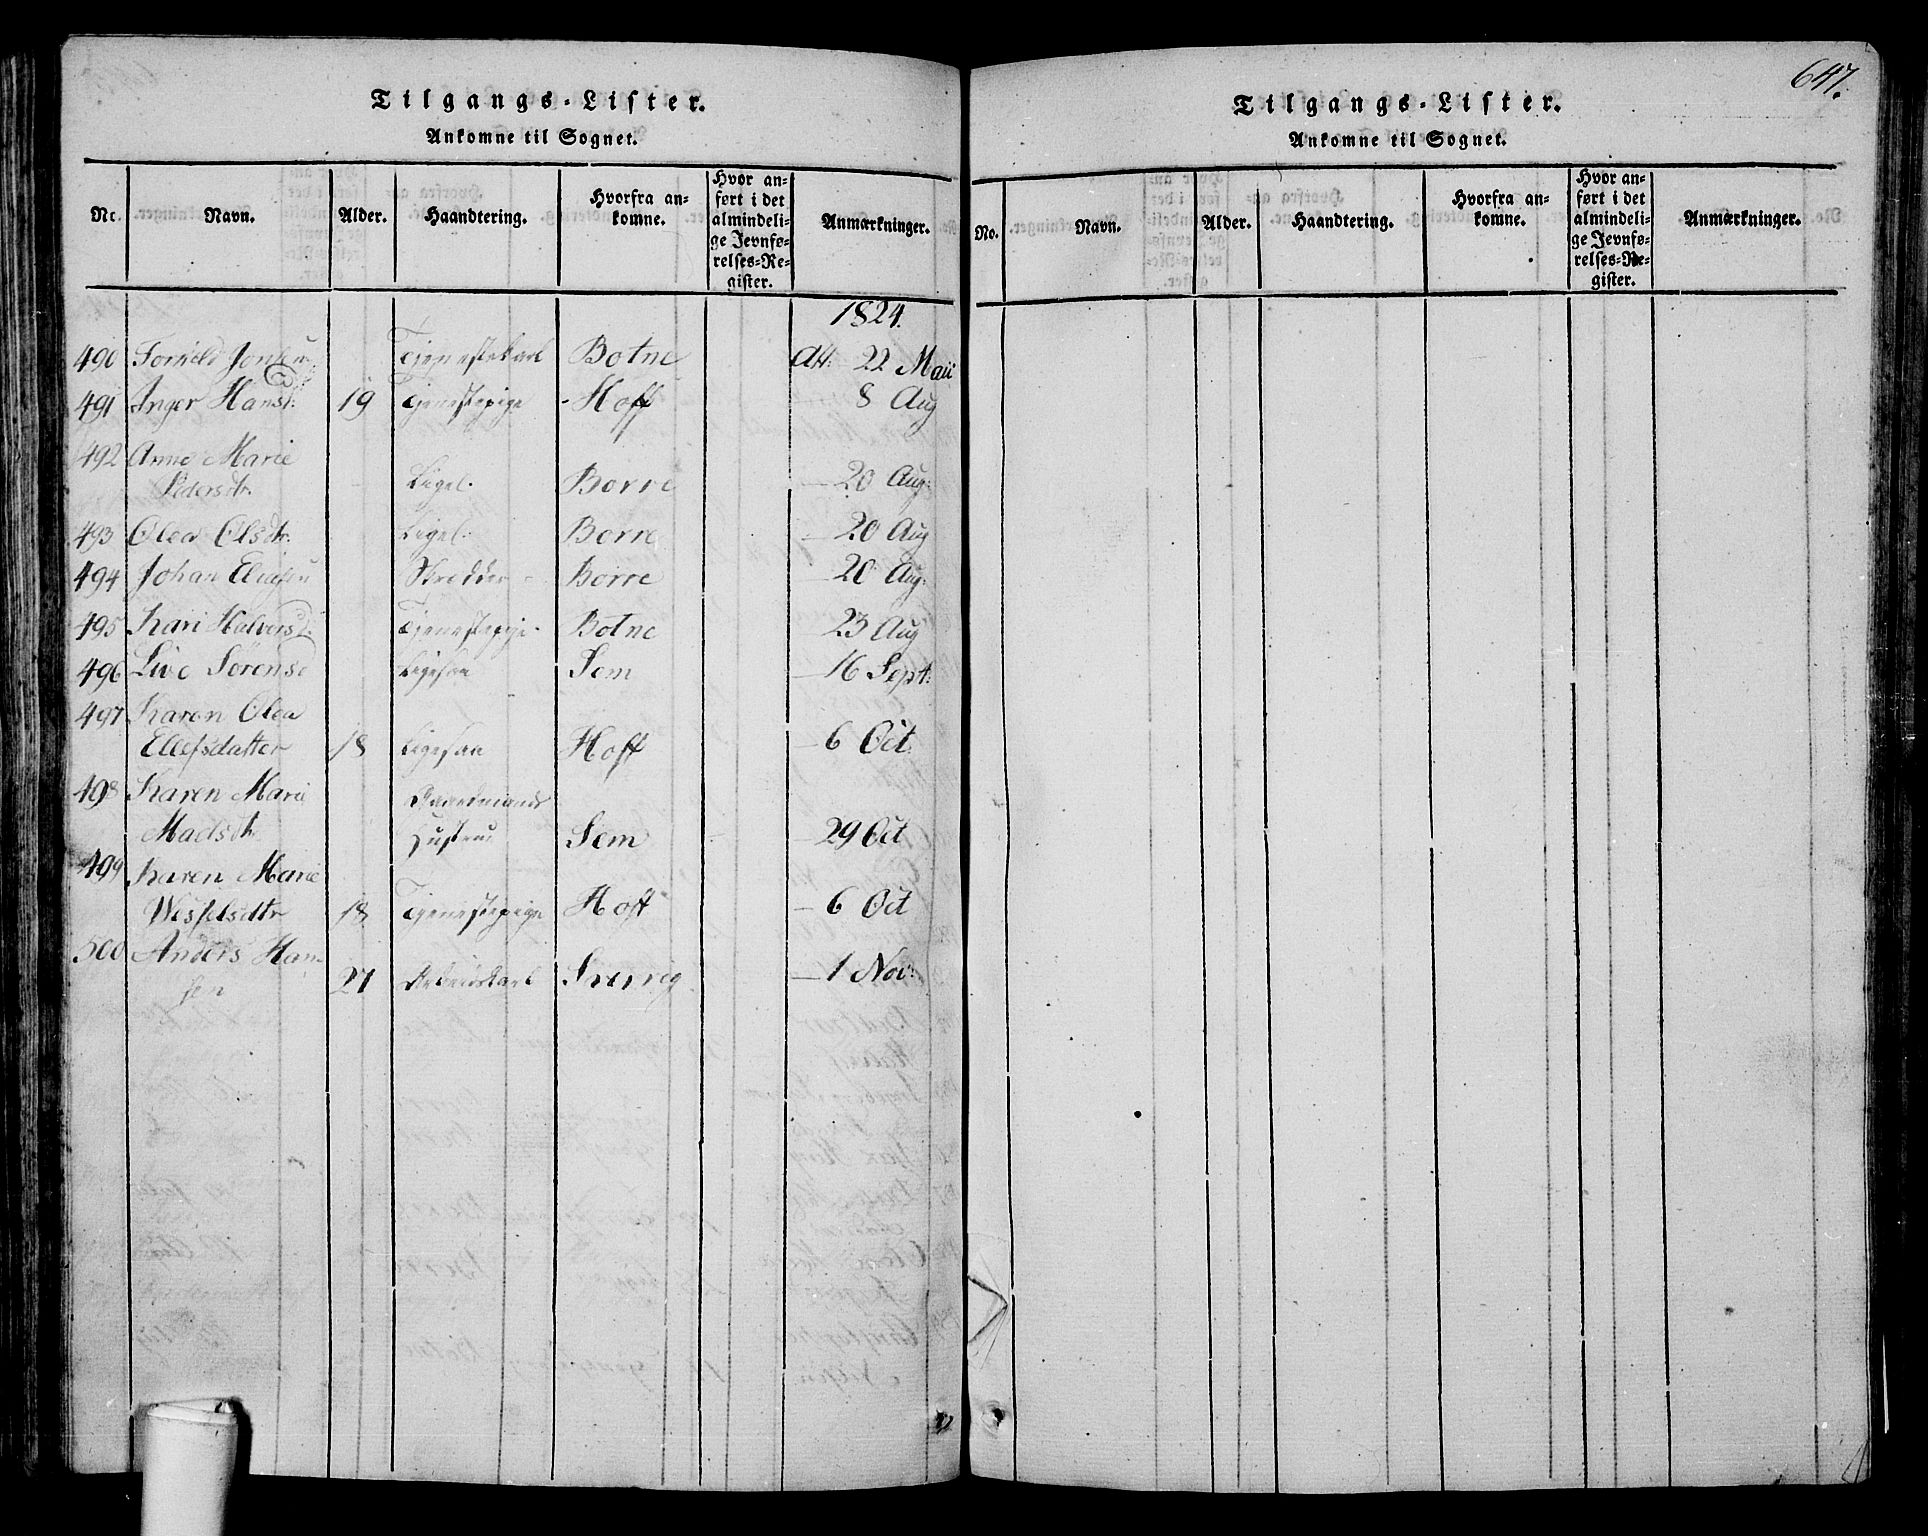 Tilgangs-Lister.
Ankomne til Sognet.
No. Navn. Alder. Haandtering. Hvorfra ankomne. Hvor anført i det almindelige Jevnførelses-Register. Anmærkninger.
1824.
490 Jonsen Tjenestekarl Botne Att: 22 Maii
491 Inger Hansd: 19 Tjenestepige Hoff 8 Aug
492 Anne Marie
Pedersdtr. Ligel. Borre — 20 Aug:
493 Olea Olsdtr. Ligel. Borre — 20 Aug
494 Johan Eliasen Skredder Borre — 20 Aug:
495 Kari Halversd. Tjenestepige Botne 23 Aug
496 Live Sørensd Ligesaa Sem — 16 Sept:
497 Karen Olea
Ellefsdatter 18 Ligesaa Hoff — 6 Oct.
498 Karen Marie Gaardmands
Madsdtr Hustrue Sem — 29 Oct
499 Karen Marie
Wesselsdtr 18 Tjenestepige Hoff — 6 Oct
500 Anders Han-
sen 27 Arbeidskarl — 1 Nov:
647.
Tilgangs-Lister.
Ankomne til Sognet.
No. Navn. Alder. Haandtering. Hvorfra ankomne. Hvor anført i det almindelige Jevnførelses-Register. Anmærkninger.